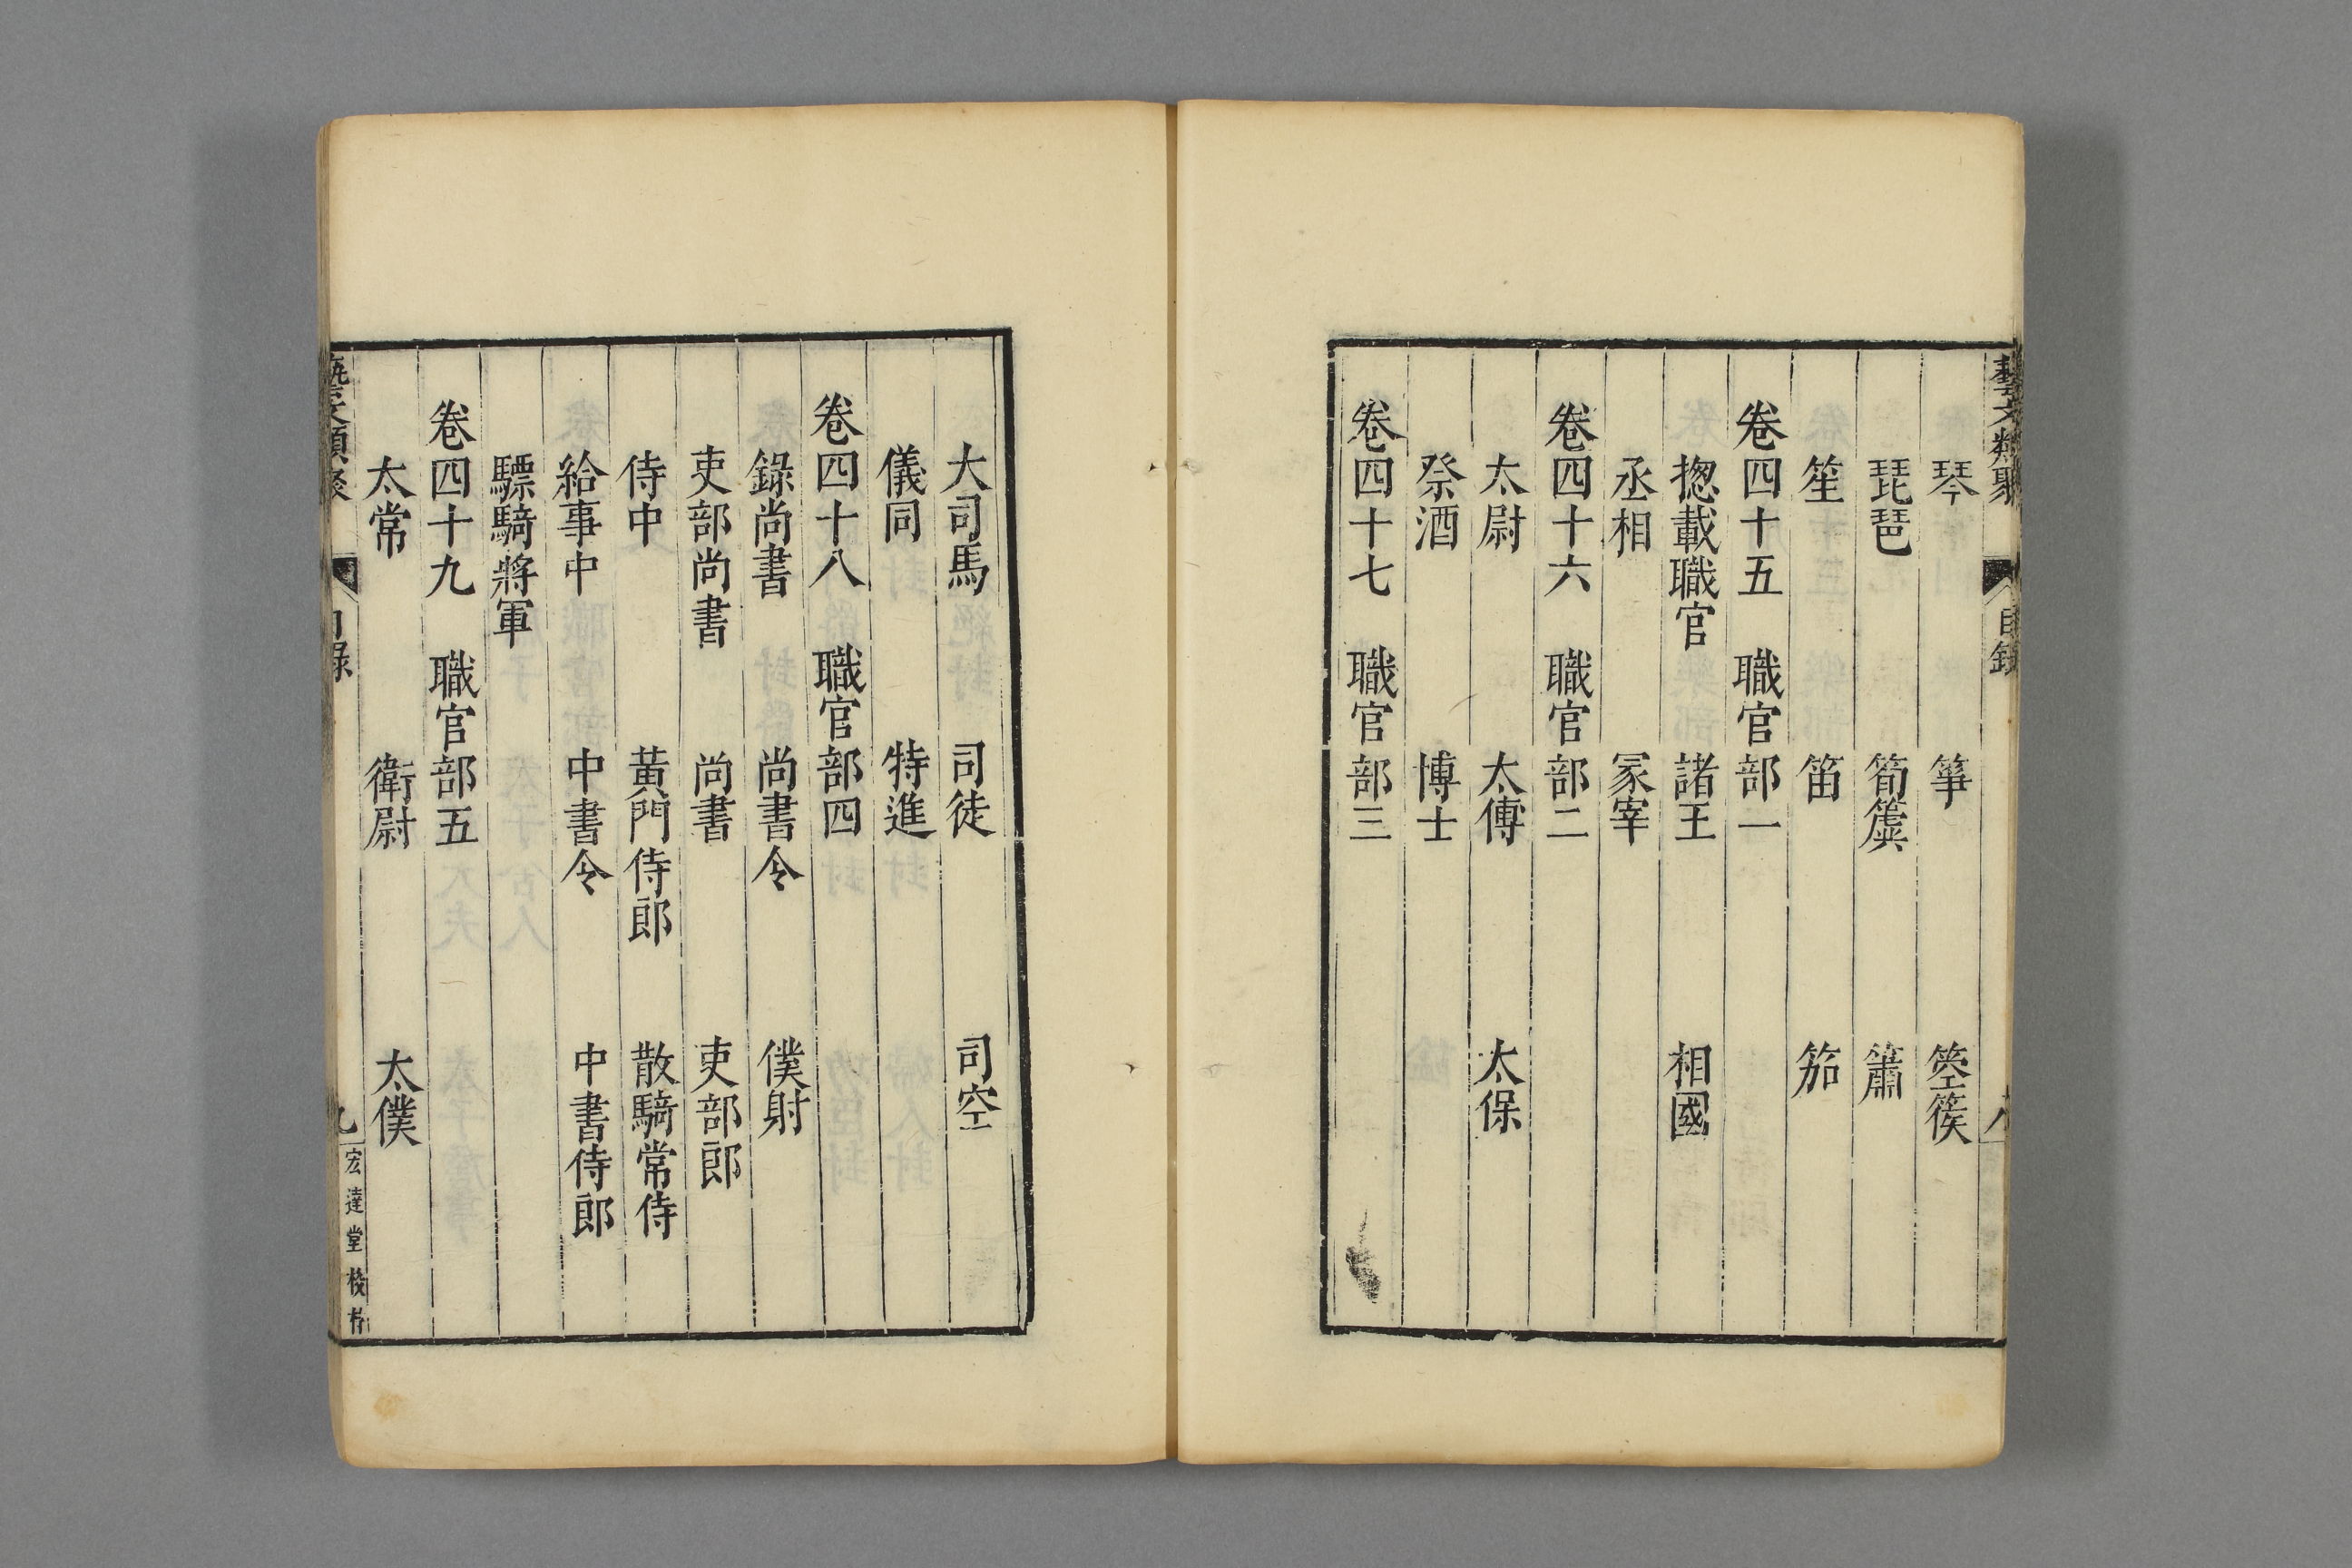 藝文類聚 目錄 八
琴 箏 箜篌
琵琶 筍簴 簫
笙 笛 笳
卷四十五 職官部一
揔載職官 諸王 相國
丞相 冢宰
卷四十六 職官部二
太尉 太傅 太保
祭酒 博士
卷四十七 職官部三
大司馬 司徒 司空
儀同 特進
卷四十八 職官部四
錄尚書 尚書令 僕射
吏部尚書 尚書 吏部郎
侍中 黃門侍郎 散騎常侍
給事中 中書令 中書侍郎
驃騎將軍
卷四十九 職官部五
太常 衛尉 太僕
藝文類聚 目錄 九 宏達堂校栞